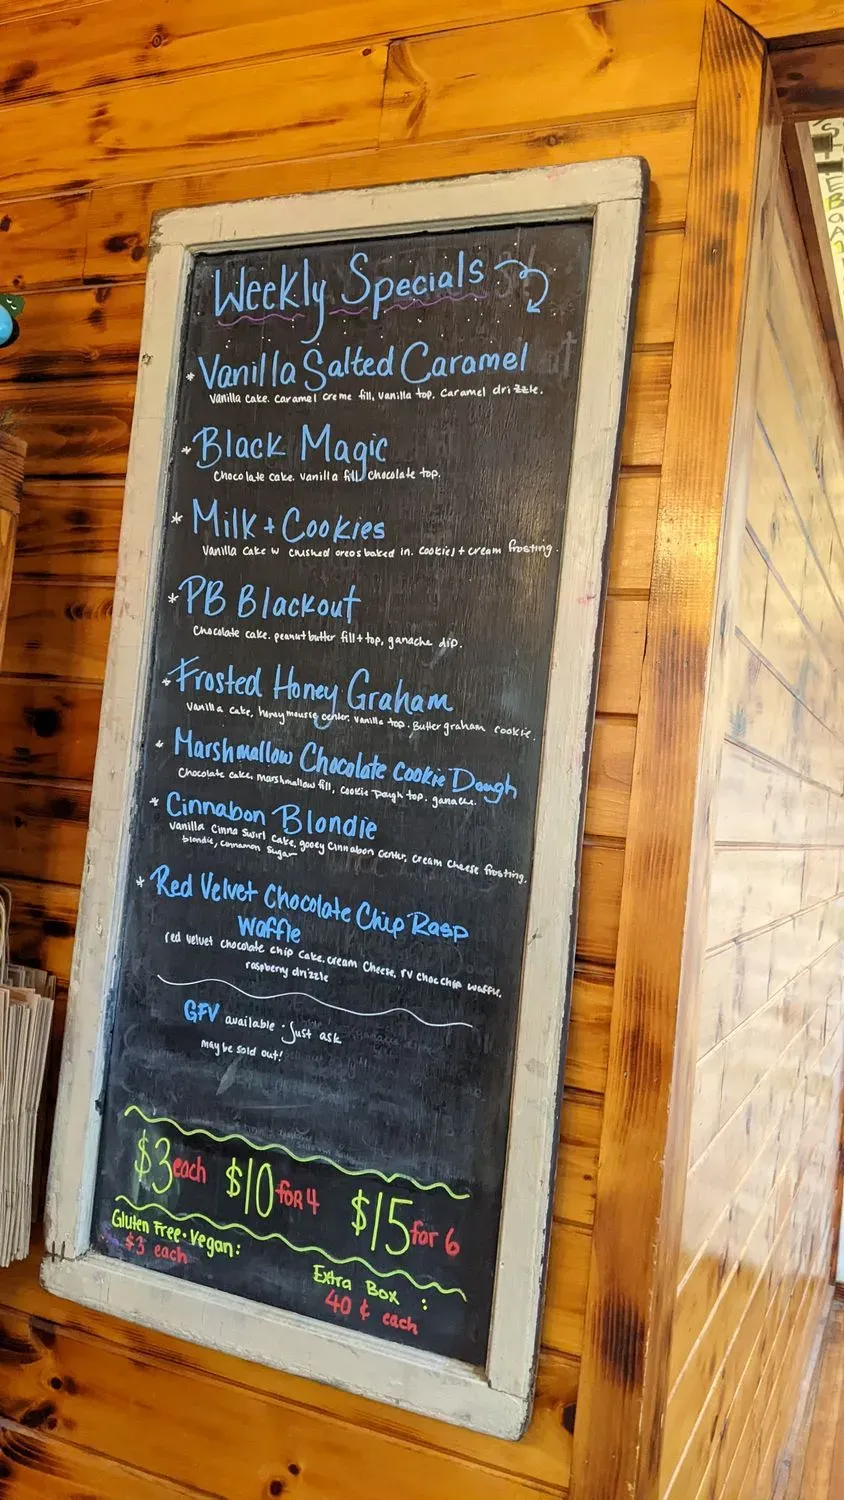 Weekly Specials
* Vanilla Salted Caramel
Vanilla cake. Caramel creme fill, Vanilla top, Caramel drizzle.
* Black Magic
Chocolate cake. Vanilla fill, Chocolate top.
* Milk + Cookies
Vanilla Cake w crushed oreos baked in. Cookies + cream frosting.
* PB Blackout
Chocolate cake. peanut butter fill + top, ganache dip.
* Frosted Honey Graham
Vanilla cake, honey mousse center, Vanilla top. Butter graham cookie.
* Marshmallow Chocolate Cookie Dough
Chocolate cake, marshmallow fill, cookie Dough top. ganache.
* Cinnabon Blondie
Vanilla Cinna Swirl Cake, gooey Cinnabon center, cream cheese frosting,
blondie, cinnamon sugar
* Red Velvet Chocolate Chip Rasp
Waffle
red velvet chocolate chip cake. cream cheese, rv choc chip waffle,
raspberry drizzle
GFV available · Just ask
may be sold out!
$3 each $10 for 4 $15 for 6
Gluten Free · Vegan:
$3 each
Extra Box :
40 ¢ each